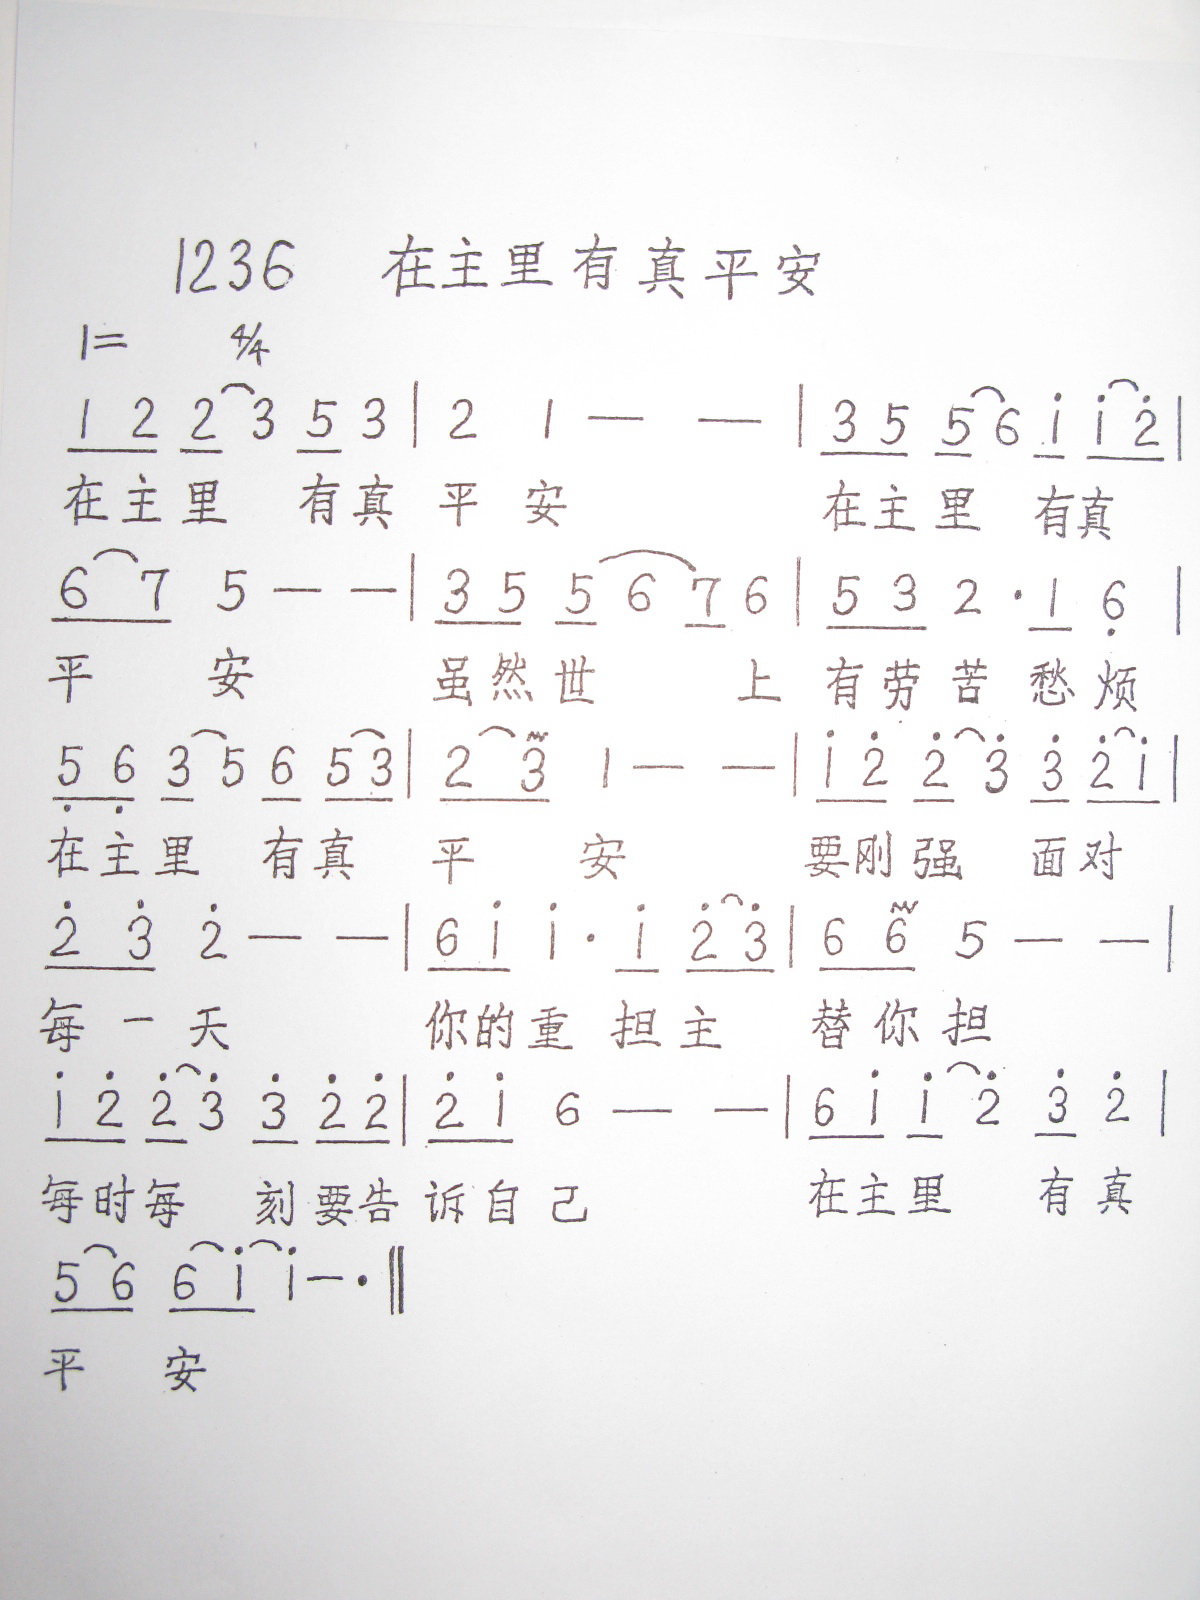 1236 在主里有真平安
1= 4/4
1 2 2 3 5 3 | 2 1 — — | 3 5 5 6 i i 2̇ |
在主里 有真 平 安 在主里 有真
6 7 5 — — | 3 5 5 6 7 6 | 5 3 2 · 1 6̣ |
平 安 虽然世 上 有劳苦愁烦
5̣ 6̣ 3 5 6 5 3 | 2 3 1 — — | i 2̇ 2̇ 3̇ 3̇ 2̇ i |
在主里 有真 平 安 要刚强 面对
2̇ 3̇ 2̇ — — | 6 i i · i 2̇ 3̇ | 6 6 5 — — |
每一天 你的重担主 替你担
i 2̇ 2̇ 3̇ 3̇ 2̇ 2̇ | 2̇ i 6 — — | 6 i i 2̇ 3̇ 2̇ |
每时每 刻要告 诉自己 在主里 有真
5 6 6 i i — · ‖
平 安